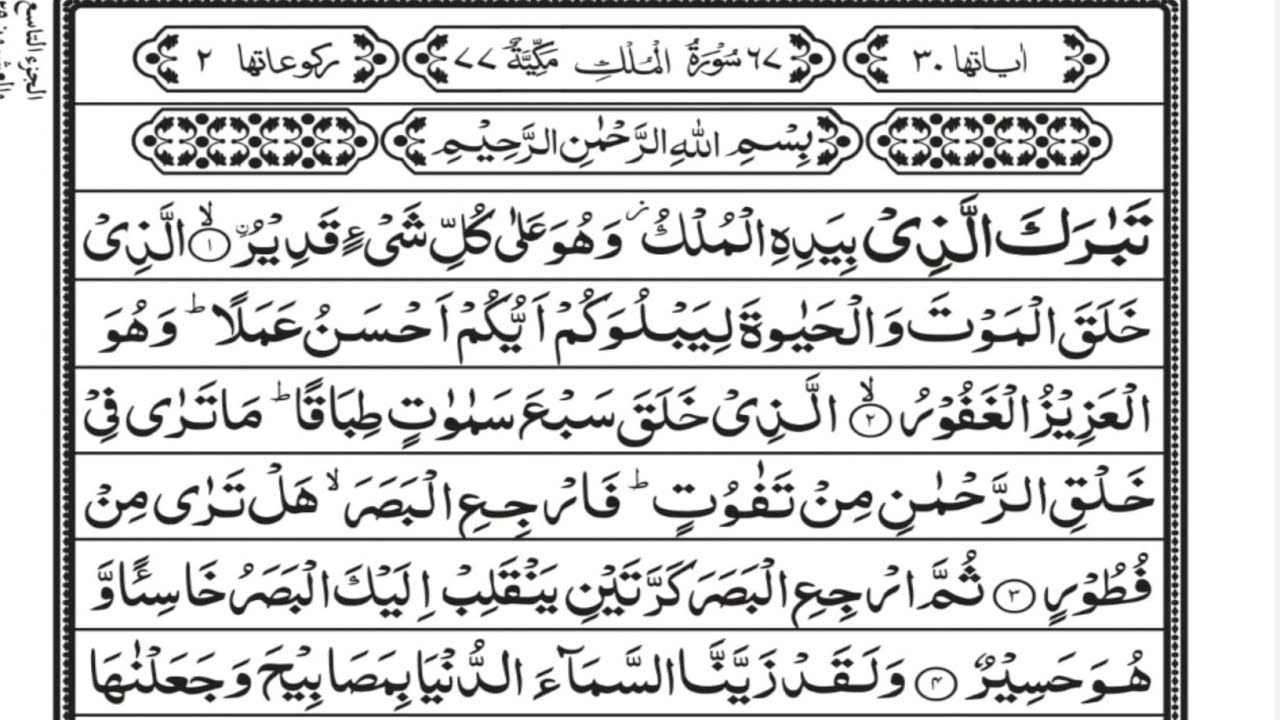 اٰیاتها ٣٠ ٦٧ سُوْرَةُ الْمُلْكِ مَكِّيَّةٌ ٧٧ رکوعاتها ٢
بِسْمِ اللهِ الرَّحْمٰنِ الرَّحِيْمِ
تَبٰرَكَ الَّذِیْ بِیَدِهِ الْمُلْكُ ز وَهُوَ عَلٰی كُلِّ شَیْءٍ قَدِیْرُ ۙ﴿١﴾ الَّذِیْ
خَلَقَ الْمَوْتَ وَالْحَیٰوةَ لِیَبْلُوَكُمْ اَیُّكُمْ اَحْسَنُ عَمَلًا ؕ وَهُوَ
الْعَزِیْزُ الْغَفُوْرُ ۙ﴿٢﴾ الَّذِیْ خَلَقَ سَبْعَ سَمٰوٰتٍ طِبَاقًا ؕ مَا تَرٰی فِیْ
خَلْقِ الرَّحْمٰنِ مِنْ تَفٰوُتٍ ؕ فَارْجِعِ الْبَصَرَ ۙ هَلْ تَرٰی مِنْ
فُطُوْرٍ ﴿٣﴾ ثُمَّ ارْجِعِ الْبَصَرَ كَرَّتَیْنِ یَنْقَلِبْ اِلَیْكَ الْبَصَرُ خَاسِئًا وَّ
هُوَ حَسِیْرٌ ﴿٤﴾ وَلَقَدْ زَیَّنَّا السَّمَآءَ الدُّنْیَا بِمَصَابِیْحَ وَجَعَلْنٰهَا
الجزء التاسع